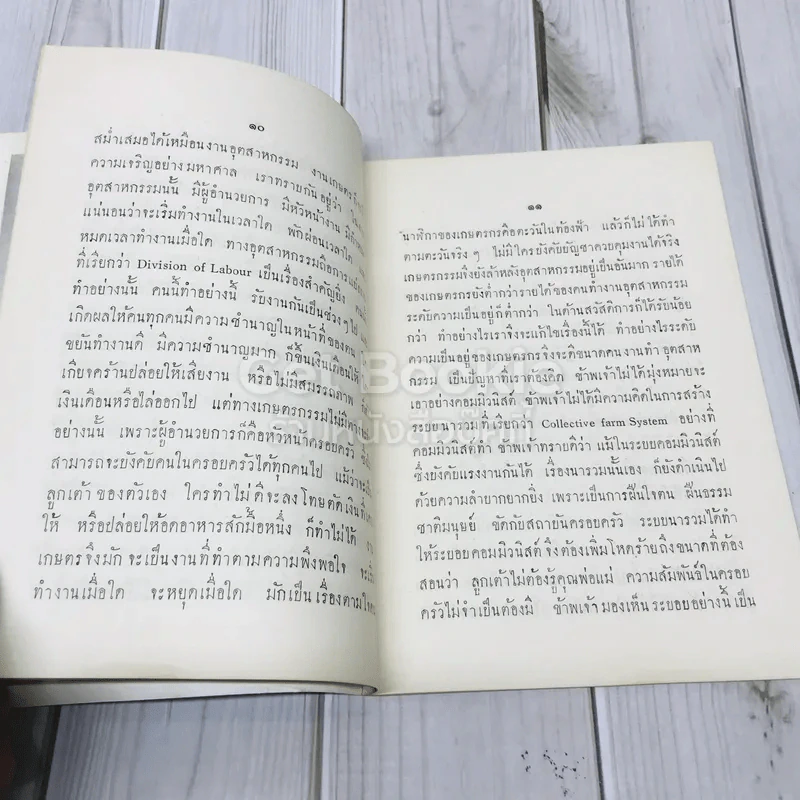 ๑๐
สม่ำเสมอได้เหมือนงานอุตสาหกรรม งานเกษตร
ความเจริญอย่างมหาศาล เราทราบกันอยู่ว่า
อุตสาหกรรมนั้น มีผู้อำนวยการ มีหัวหน้างาน
แน่นอนว่าจะเริ่มทำงานในเวลาใด พักผ่อนเวลาใด
หมดเวลาทำงานเมื่อใด ทางอุตสาหกรรมถือการ
ที่เรียกว่า Division of Labour เป็นเรื่องสำคัญยิ่ง
ทำอย่างนั้น คนนี้ทำอย่างนี้ รับงานกันเป็นช่วงๆไป
เกิดผลให้คนทุกคนมีความชำนาญในหน้าที่ของตน
ขยันทำงานดี มีความชำนาญมาก ก็ขึ้นเงินเดือนให้
เกียจคร้านปล่อยให้เสียงาน หรือไม่มีสมรรถภาพ
เงินเดือนหรือไล่ออกไป แต่ทางเกษตรกรรมไม่มี
อย่างนั้น เพราะผู้อำนวยการก็คือหัวหน้าครอบครัว
สามารถจะบังคับคนในครอบครัวได้ทุกคนไป แม้ว่าจะ
ลูกเต้าของตัวเอง ใครทำไม่ดีจะลงโทษตัดเงิน
ให้ หรือปล่อยให้อดอาหารสักมื้อหนึ่ง ก็ทำไม่ได้
เกษตรจึงมักจะเป็นงานที่ทำตามความพึงพอใจ จะ
ทำงานเมื่อใด จะหยุดเมื่อใด มักเป็นเรื่องตาม
๑๑
นาฬิกาของเกษตรกรคือตะวันในท้องฟ้า แล้วก็ไม่ได้ทำ
ตามตะวันจริงๆ ไม่มีใครบังคับบัญชาควบคุมงานได้จริง
เกษตรกรรมจึงยังล้าหลังอุตสาหกรรมอยู่เป็นอันมาก รายได้
ของเกษตรกรยังต่ำกว่ารายได้ของคนทำงานอุตสาหกรรม
ระดับความเป็นอยู่ก็ต่ำกว่า ในด้านสวัสดิการก็ได้รับน้อย
กว่า ทำอย่างไรเราจึงจะแก้ไขเรื่องนี้ได้ ทำอย่างไรระดับ
ความเป็นอยู่ของเกษตรกรจึงจะดีขนาดคนงานทำ อุตสาห
กรรม เป็นปัญหาที่เราต้องคิด ข้าพเจ้าไม่ได้มุ่งหมายจะ
เอาอย่างคอมมิวนิสต์ ข้าพเจ้าไม่ได้มีความคิดในการสร้าง
ระบบนารวมที่เรียกว่า Collective farm System อย่างที่
คอมมิวนิสต์ทำ ข้าพเจ้าทราบดีว่า แม้ในระบบคอมมิวนิสต์
ซึ่งบังคับแรงงานกันได้ เรื่องนารวมนั้นเอง ก็ยังดำเนินไป
ด้วยความลำบากยากยิ่ง เพราะเป็นการฝืนใจตน ฝืนธรรม
ชาติมนุษย์ ขัดกับสถาบันครอบครัว ระบบนารวมได้ทำ
ให้ระบบคอมมิวนิสต์จึงต้องเพิ่มโหดร้ายถึงขนาดที่ต้อง
สอนว่า ลูกเต้าไม่ต้องรู้คุณพ่อแม่ ความสัมพันธ์ในครอบ
ครัวไม่จำเป็นต้องมี ข้าพเจ้ามองเห็นระบอบอย่างนี้เป็น